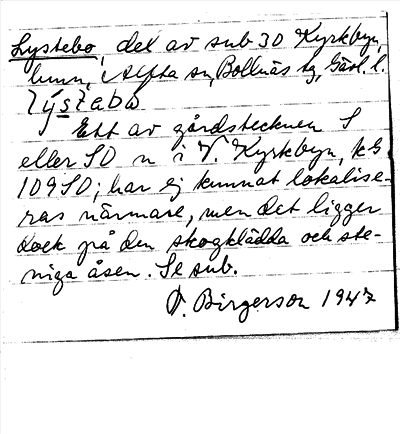 Lystebo, del av sub 30 Kyrkbyn,
hmn, Alfta sn, Bollnäs tg, Gävl. l.
lýstabω
Ett av gårdstecknen S
eller SO n i V. Kyrkbyn, kG
109 SO; har ej kunnat lokalise-
ras närmare, men det ligger
dock på den skogklädda och ste-
niga åsen. Se sub.
Birgerson 1947